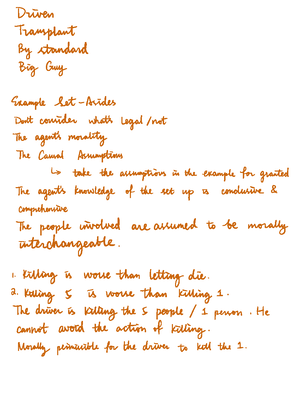 Driver
Transplant
By standard
Big Guy
Example Set-Asides
Don't consider what's legal/not
The agent's morality
The Causal Assumptions
↳ take the assumptions in the example for granted
The agent's knowledge of the set up is conclusive &
comprehensive
The people involved are assumed to be morally
interchangeable.
1. Killing is worse than letting die.
2. Killing 5 is worse than killing 1.
The driver is killing the 5 people / 1 person. He
cannot avoid the action of killing.
Morally permissible for the driver to kill the 1.